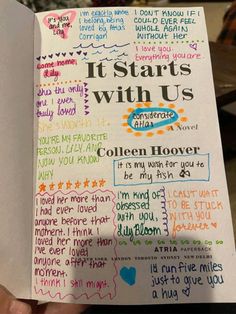 It's you and
me,
Lily
I'm exactly where
I belong, being
loved by Atlas
Corrigan
I DON'T KNOW IF I
COULD EVER FEEL
WHOLE AGAIN
WITHOUT HER
I love you.
Everything you are.
Come home,
Lily
She the only
one I ever
truly loved
It Starts
with Us
considerate
Atlas
a Novel
She's worth it
YOU'RE MY FAVORITE
PERSON, LILY. AND
NOW YOU KNOW
WHY
Colleen Hoover
It is my wish for you to
be my fish
I loved her more than
I had ever loved
anyone before that
moment. I think I
loved her more than
I've ever loved
anyone after that
moment.
I think I still might.
I'm kind of
obsessed
with you,
Lily Bloom
I CAN'T WAIT
TO BE STUCK
WITH YOU
forever
ATRIA PAPERBACK
NEW YORK LONDON TORONTO SYDNEY NEW DELHI
I'd run five miles
just to give you
a hug